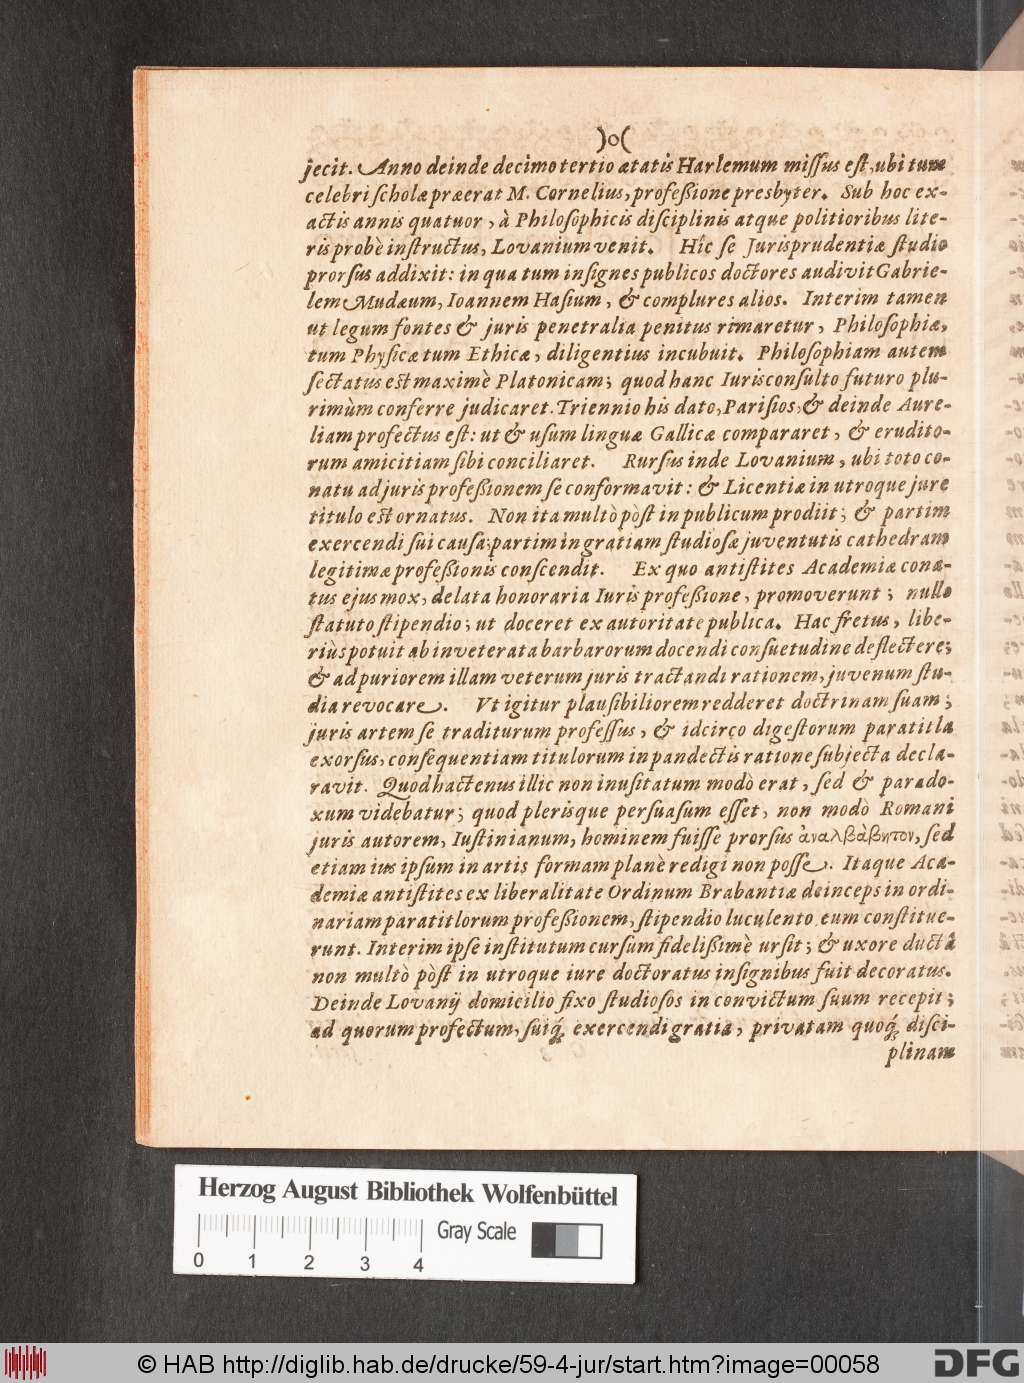 )o(
jecit. Anno deinde decimotertio ætatis Harlemum miſſus eſt, ubi tum
celebri ſcholæ præerat M. Cornelius, profeßione presbyter. Sub hoc ex-
actis annis quatuor, à Philoſophicis diſciplinis atque politioribus lite-
ris probè inſtructus, Lovanium venit. Hîc ſe Jurisprudentiæ ſtudio
prorſus addixit: in qua tum inſignes publicos doctores audivit Gabrie-
lem Mudæum, Ioannem Haſium, & complures alios. Interim tamen
ut legum fontes & juris penetralia penitus rimaretur, Philoſophiæ,
tum Phyſicæ tum Ethicæ, diligentius incubuit. Philoſophiam autem
ſectatus est maximè Platonicam; quod hanc Iurisconſulto futuro plu-
rimùm conferre judicaret. Triennio his dato, Pariſios, & deinde Aure-
liam profectus eſt: ut & uſum linguæ Gallicæ compararet, & erudito-
rum amicitiam ſibi conciliaret. Rurſus inde Lovanium, ubi toto co-
natu ad juris profeßionem ſe conformavit: & Licentiæ in utroque jure
titulo est ornatus. Non ita multò pòſt in publicum prodiit; & partim
exercendi ſui cauſa, partim in gratiam ſtudioſæ juventutis cathedram
legitimæ profeßionis conſcendit. Ex quo antiſtites Academiæ cona-
tus ejus mox, delata honoraria Iuris profeßione, promoverunt; nullo
ſtatuto ſtipendio; ut doceret ex autoritate publica. Hac fretus, libe-
riùs potuit ab inveterata barbarorum docendi conſuetudine deflectere;
& ad puriorem illam veterum juris tractandi rationem, juvenum ſtu-
dia revocare. Vt igitur plauſibiliorem redderet doctrinam ſuam;
juris artem ſe traditurum profeſſus, & idcirco digeſtorum paratitla
exorſus, conſequentiam titulorum in pandectis ratione ſubjecta decla-
ravit. Quod hactenus illic non inuſitatum modò erat, ſed & parado-
xum videbatur; quod plerisque perſuaſum eſſet, non modò Romani
juris autorem, Iuſtinianum, hominem fuiſſe prorſus ἀναλβάβητον, ſed
etiam ius ipſum in artis formam planè redigi non poſſe. Itaque Aca-
demiæ antiſtites ex liberalitate Ordinum Brabantiæ deinceps in ordi-
nariam paratitlorum profeßionem, ſtipendio luculento eum conſtitue-
runt. Interim ipſe inſtitutum curſum fidelißimè urſit; & uxore ductâ
non multò pòſt in utroque iure doctoratus inſignibus fuit decoratus.
Deinde Lovanij domicilio fixo ſtudioſos in convictum ſuum recepit;
ad quorum profectum, ſuiq́; exercendi gratia, privatam quoq́; diſci-
plinam
Herzog August Bibliothek Wolfenbüttel
Gray Scale
0 1 2 3 4
© HAB http://diglib.hab.de/drucke/59-4-jur/start.htm?image=00058
DFG